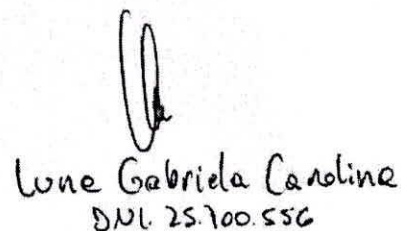 Luna Gabriela Carolina
DNI. 25.700.556